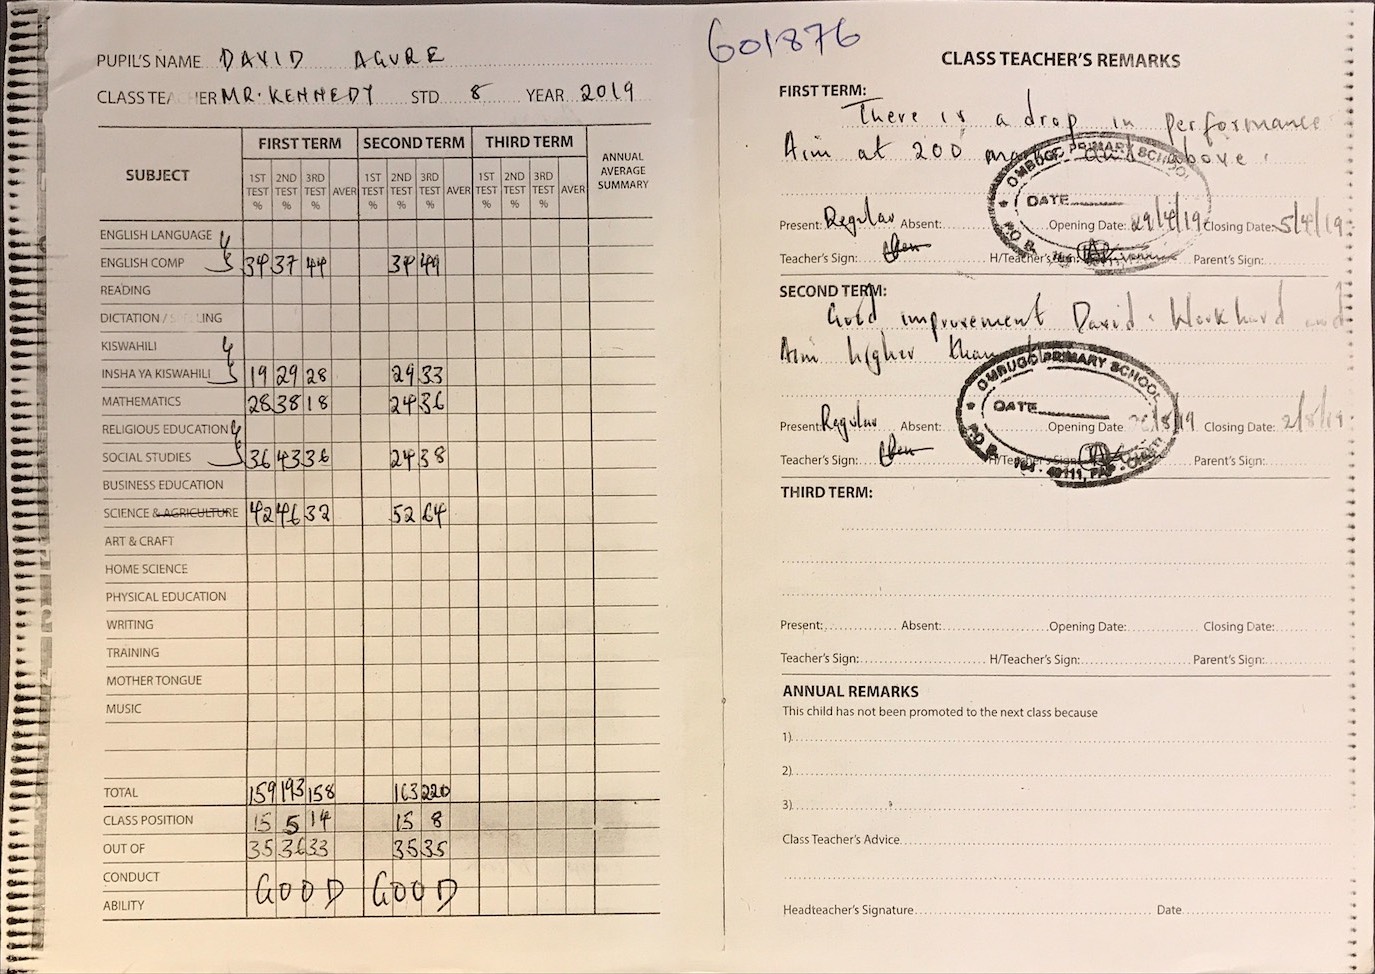 PUPIL'S NAME DAVID AGURE
CLASS TEA HER MR. KENNEDY STD 8 YEAR 2019
SUBJECT FIRST TERM SECOND TERM THIRD TERM ANNUAL AVERAGE SUMMARY
1ST TEST % 2ND TEST % 3RD TEST % AVER 1ST TEST % 2ND TEST % 3RD TEST % AVER 1ST TEST % 2ND TEST % 3RD TEST % AVER
ENGLISH LANGUAGE
ENGLISH COMP 34 37 44 34 49
READING
DICTATION / LING
KISWAHILI
INSHA YA KISWAHILI 19 29 28 29 33
MATHEMATICS 28 38 18 24 36
RELIGIOUS EDUCATION
SOCIAL STUDIES 36 43 36 24 38
BUSINESS EDUCATION
SCIENCE & AGRICULTURE 42 46 32 52 64
ART & CRAFT
HOME SCIENCE
PHYSICAL EDUCATION
WRITING
TRAINING
MOTHER TONGUE
MUSIC
TOTAL 159 193 158 163 220
CLASS POSITION 15 5 14 15 8
OUT OF 35 36 33 35 35
CONDUCT GOOD GOOD
ABILITY
601876
CLASS TEACHER'S REMARKS
FIRST TERM:
There is a drop in performance
Aim at 200 and above.
OMBUGO PRIMARY SCHOOL
DATE
P.O B
Present: Regular Absent: Opening Date: 29/4/19 Closing Date: 5/4/19
Teacher's Sign: H/Teacher's Sign: Parent's Sign:
SECOND TERM:
Good improvement David. Work hard and
Aim higher than
OMBUGO PRIMARY SCHOOL
DATE
Present: Regular Absent: Opening Date: /8/19 Closing Date: 2/8/19
Teacher's Sign: H/Teacher's Sign: Parent's Sign:
40111, PAP-
THIRD TERM:
Present: Absent: Opening Date: Closing Date:
Teacher's Sign: H/Teacher's Sign: Parent's Sign:
ANNUAL REMARKS
This child has not been promoted to the next class because
1)
2)
3)
Class Teacher's Advice
Headteacher's Signature Date